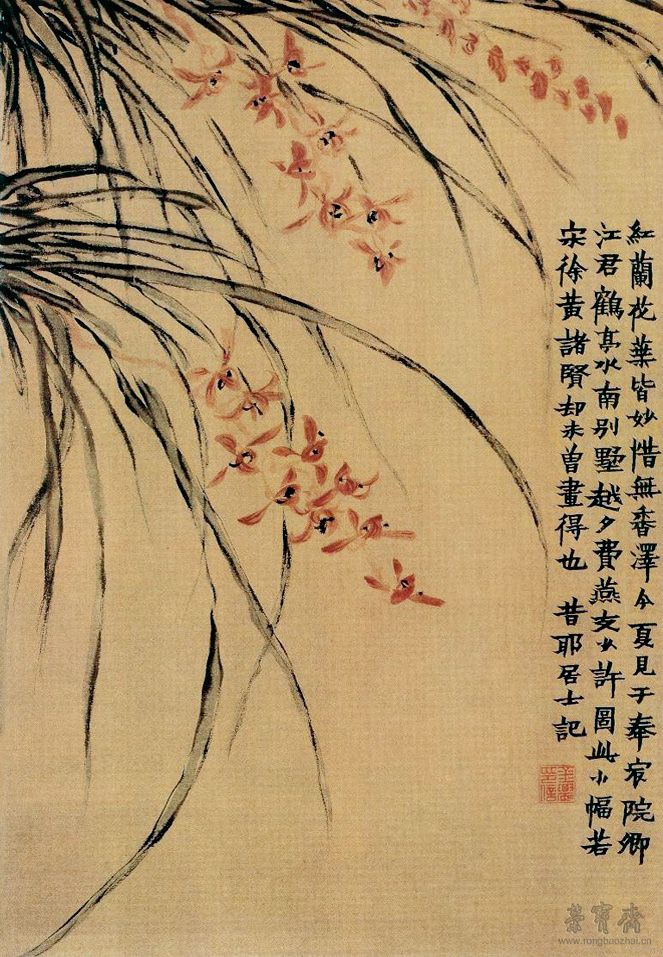 紅蘭花葉皆妙惜無香澤今夏見于奉宸院卿
江君鶴亭水南別墅越夕費燕支少許圖此小幅若
宋徐黃諸賢却未曾畫得也　昔耶居士記
金農印信
榮寶齋
www.rongbaozhai.cn